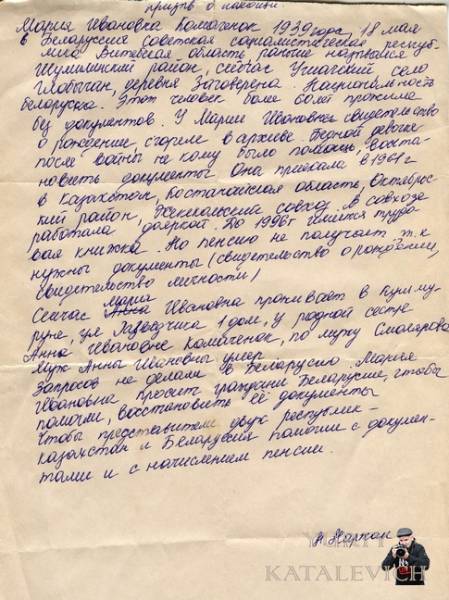 призыв о помощи.
Мария Ивановна Колтаченок 1939 года, 18 мая
в Беларуссия Советская социалистическая респуб-
лика Витебская область, раньше назывался
Шумилинский район, сейчас Ушачский село
Глыбочин, деревня Заговерена. Национальность
беларуска. Этот человек боме болей прожила
без документов. У Марии Ивановны свидетельство
о рождении, сгорело в архиве. Бедной девочке
после войны не кому было помощь, восста-
новить документы. Она приехала в 1961 г
в Казахстан, Костанайская область, Октябрьс-
кий район, совхоз. В совхозе
работала дояркой. До 1996 г имеется трудо-
вая книжка. Но пенсию не получает т.к
нужны документы (свидетельство о рождении,
свидетельство личности)
Сейчас Мария Ивановна проживает в Кушму-
руне, ул Лазоватика 1 дом, у родной сестре
Анна Ивановне Колтаченок, по мужу Смолярова
Муж Анны Ивановны умер
Запросов не делали в Беларусию. Мария
Ивановна просит граждани Беларусии, чтобы
помогли, восстановить её документы
Чтобы представители двух республик -
Казахстан и Беларусия помогли с докумен-
тами и с начислением пенсии.
YURIY
KATALEVICH